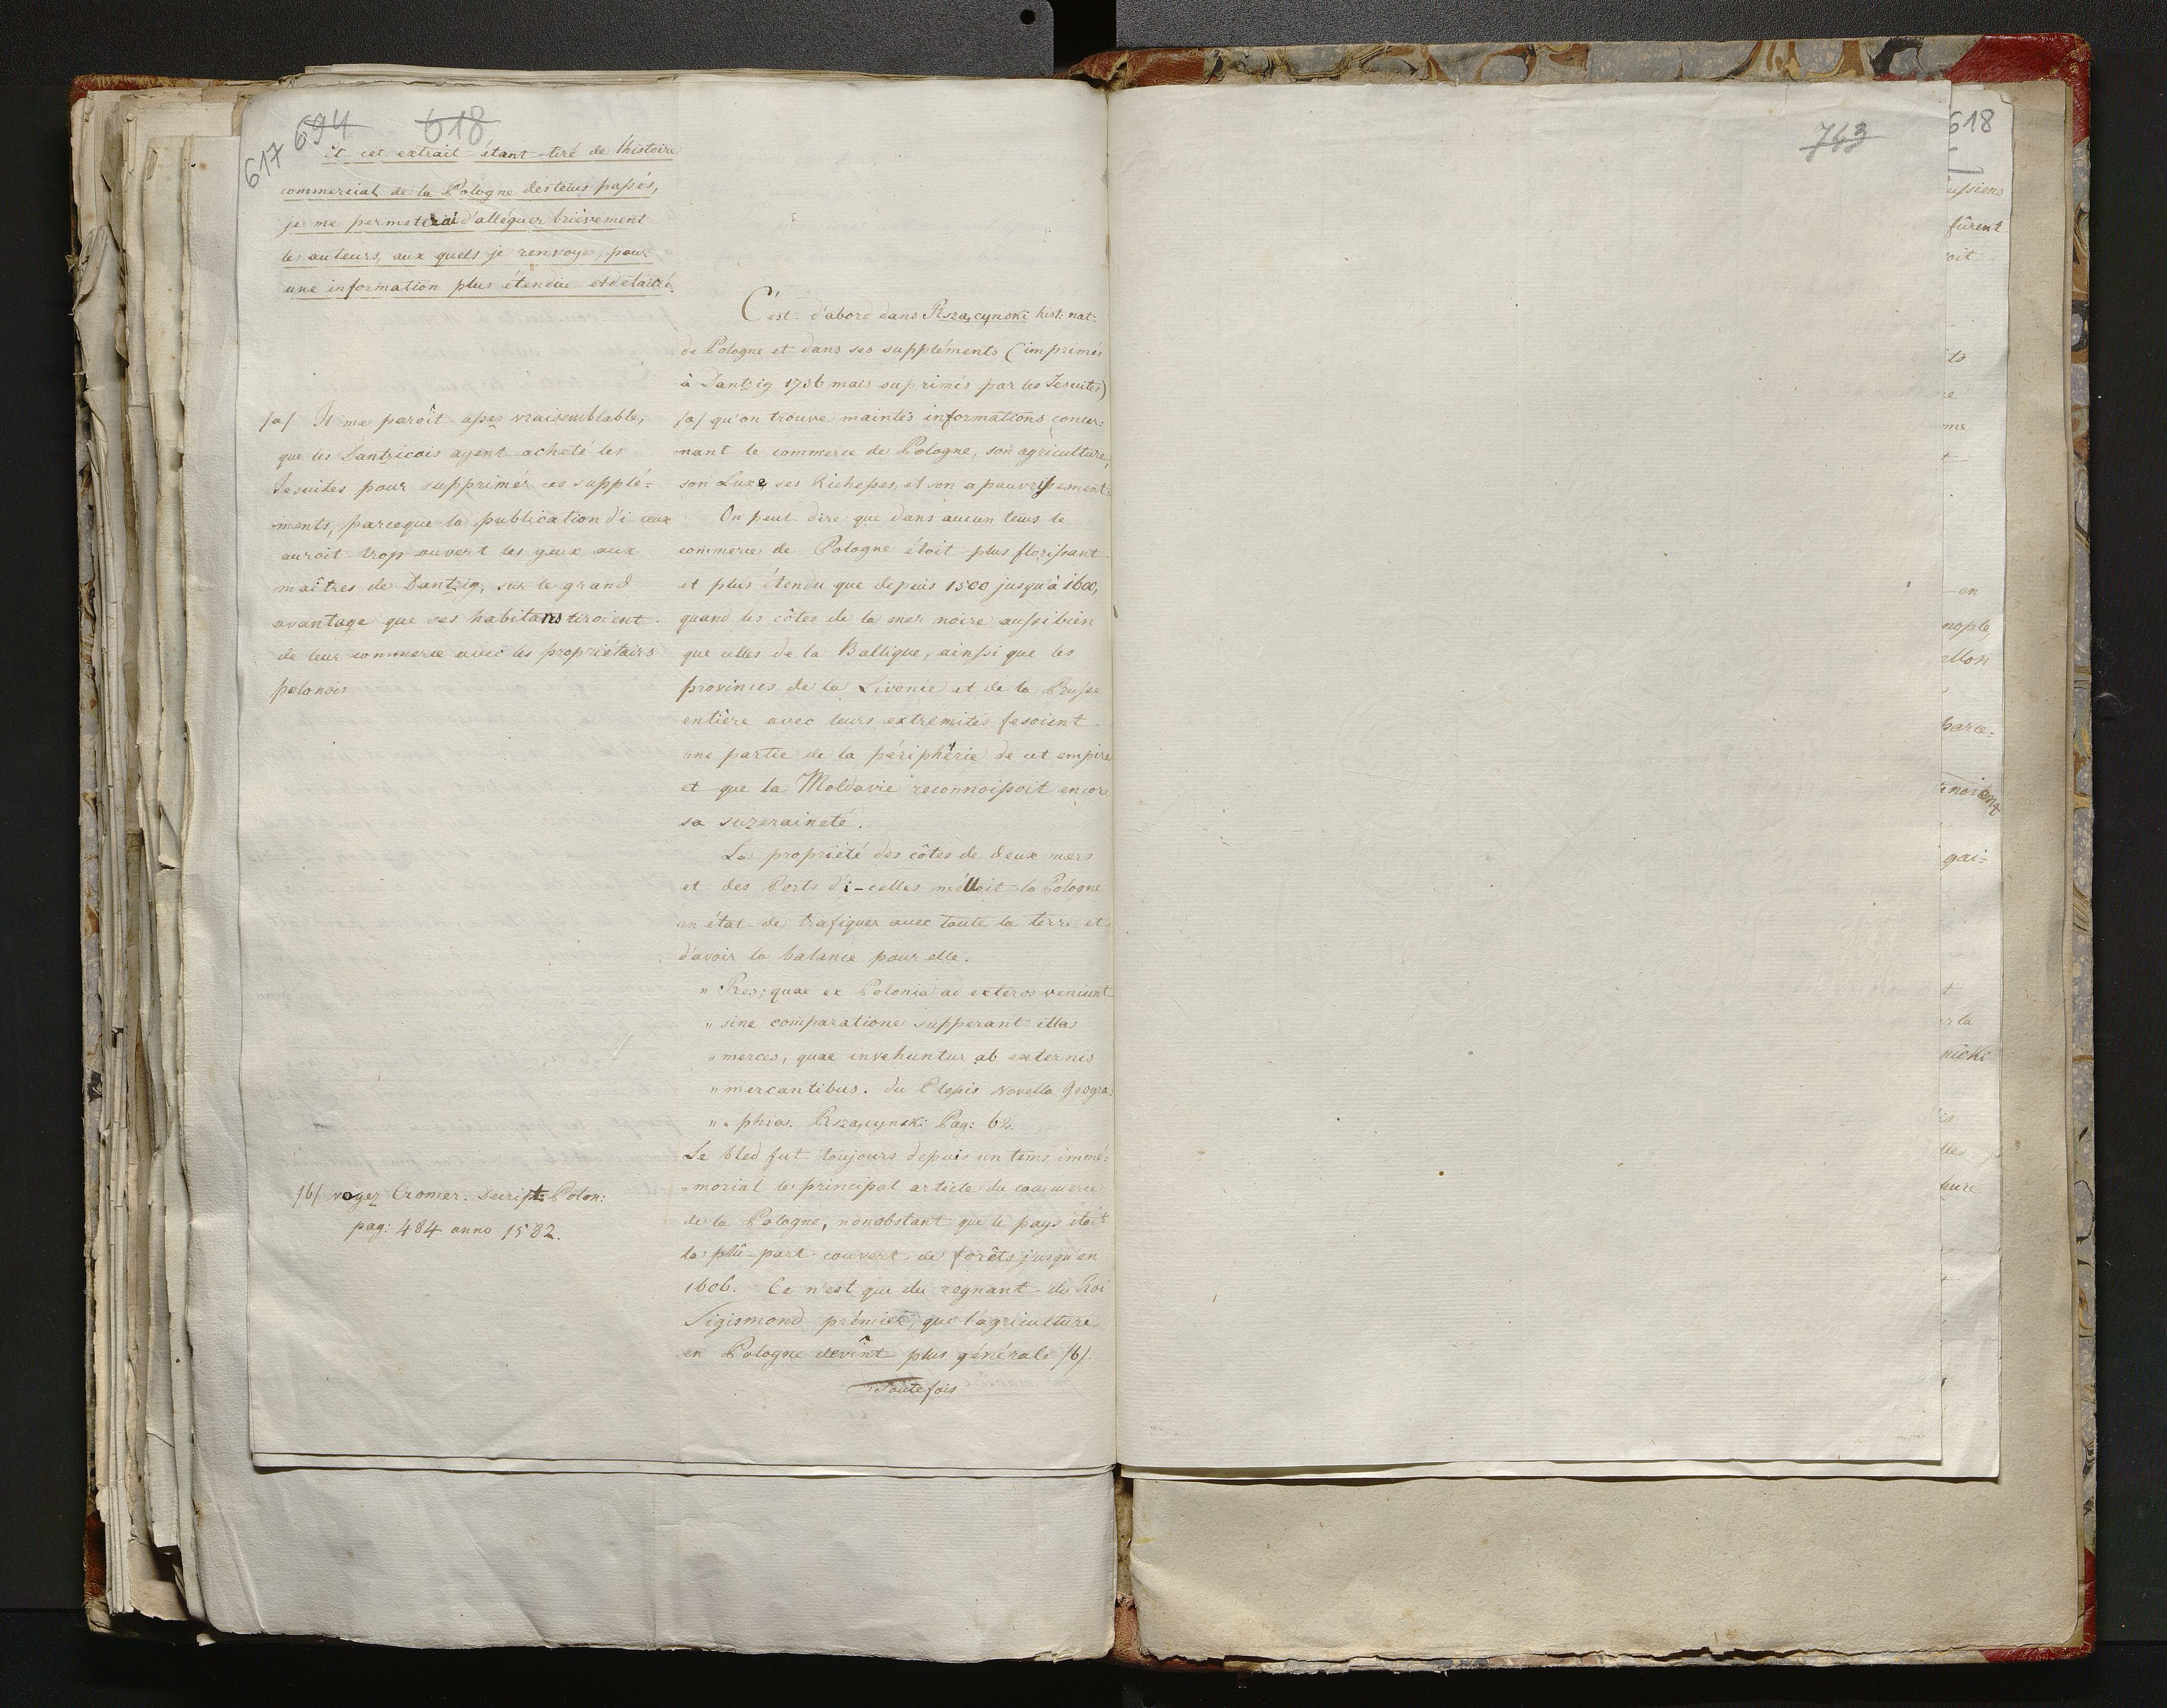 617 694 618
Et cet extrait étant tiré de l'histoire
commercial de la Pologne des tems passés,
je me permettrai d'alléguer brièvement
les auteurs, aux quels je renvoye, pour
une information plus étendue et détaillé.
/a/ Il me paroît assez vraisemblable,
que les Dantzicois ayent acheté les
Jesuites pour supprimér ces supplé=
ments, parceque la publication d'i-ceux
auroit trop ouvert les yeux aux
maîtres de Dantzig, sur le grand
avantage que ses habitans tiroient
de leur commerce avec les propriétairs
polonois
/b/ voyez Cromer. Descript: Polon:
pag: 484 anno 1582.
C'est d'abord dans Rszączynski hist: nat:
de Pologne et dans ses suppléments (imprimés
à Dantzig 1736 mais suprimés par les Jesuites)
/a/ qu'on trouve maintes informations concer=
nant le commerce de Pologne, son agriculture,
son Luxe, ses Richesses, et son apauvrissement.
On peut dire que dans aucun tems le
commerce de Pologne étoit plus florissant
et plus étendu que depuis 1500 jusqu'à 1600,
quand les côtes de la mer noire aussi bien
que celles de la Baltique, ainssi que les
provinces de la Livonie et de la Prusse
entière avec leurs extrémités fesoient
une partie de la périphérie de cet empire
et que la Moldavie reconnoissoit encore
sa suzeraineté.
La propriété des côtes de deux mers
et des Ports d'i-celles mettoit la Pologne
en état de trafiquer avec toute la terre et
d'avoir la balance pour elle.
" Res; quae ex Polonia ad exteros veniunt
" sine comparatione supperant illas
" merces, quae invehuntur ab externis
" mercantibus. du Plessis Novella Geogra=
" = phia. Rszączynski Pag: 62.
Le bled fut toujours depuis un tems immé=
=morial le principal article du commerce
de la Pologne, nonobstant que le pays étoit
la plû-part couvert de forêts jusqu'en
1606. Ce n'est que du regnant du Roi
Sigismond prémier, que l'agriculture
en Pologne devînt plus générale /b/.
Toutefois
743
618
ussiens
fûrent
oit
its
me
en
nople
allon
parce=
enoient
gai=
t
er la
nicki
lles
eure